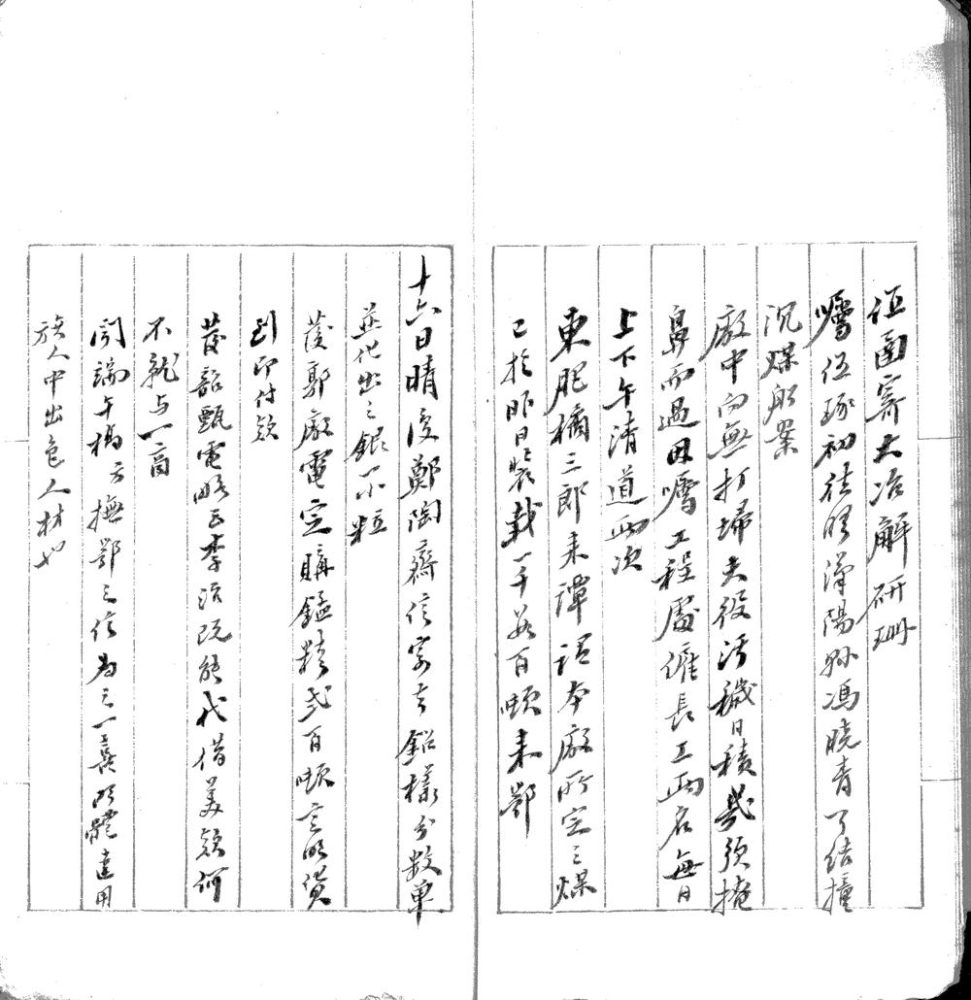 函寄大冶解研珊
囑伍琢初往晤漢陽縣馮曉青了結撞
沉煤船案
廠中向無打掃夫役污穢日積幾須掩
鼻而過因囑工程處僱長工兩名每日
上下午清道兩次
東肥橘三郎來譚語本廠所定之煤
已於昨日裝載一千五百噸來鄂
十六日晴復鄭陶齋信寄去鉛樣分數單
並化出之銀一小粒
復郭廠電定購錳精弍百噸言明貨
到即付款
發韶甄電略云李治既能代借美款何
不就与一商
聞端午橋方撫鄂之信為之一喜明體達用
旗人中出色人材也